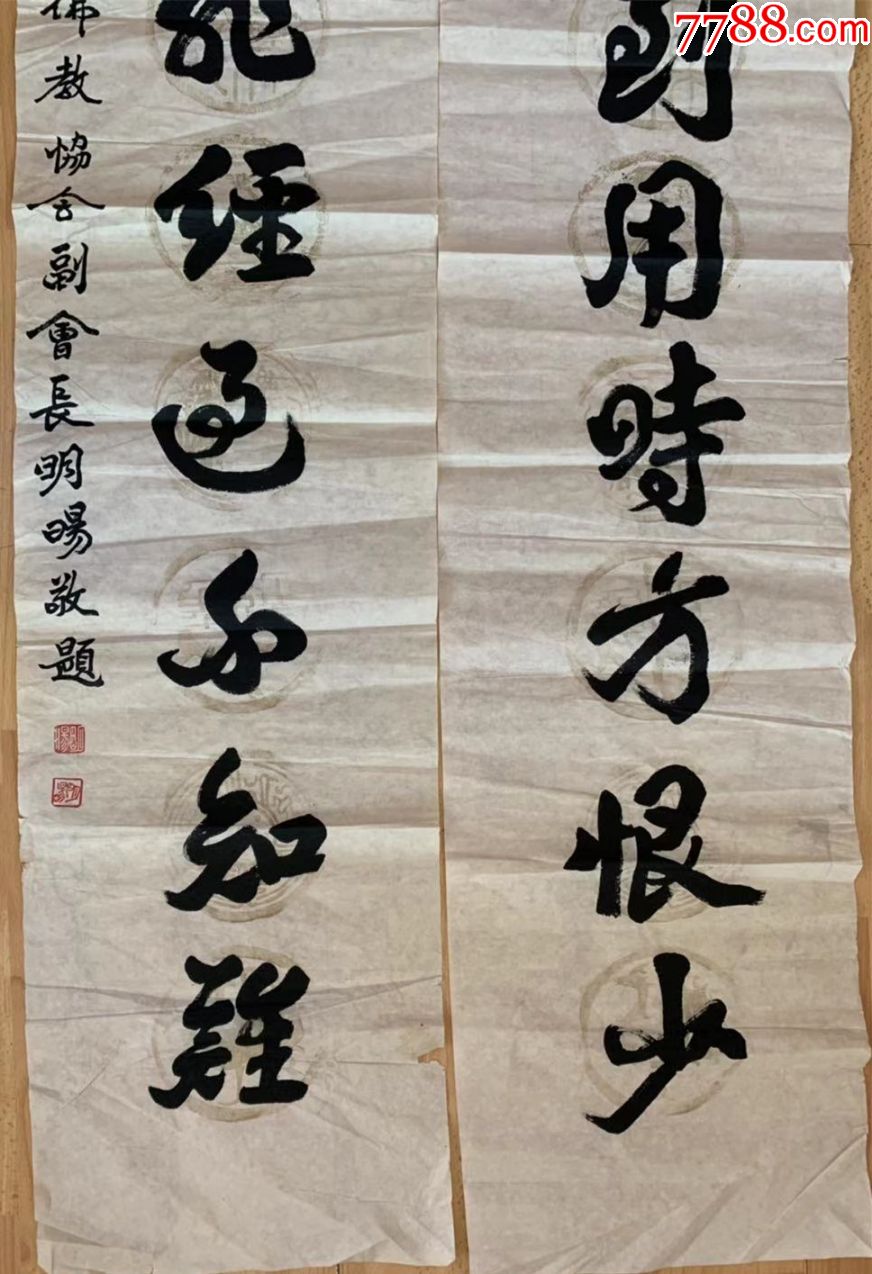 7788.com
到用時方恨少
非經過不知難
佛教恊会副會長明暘敬題